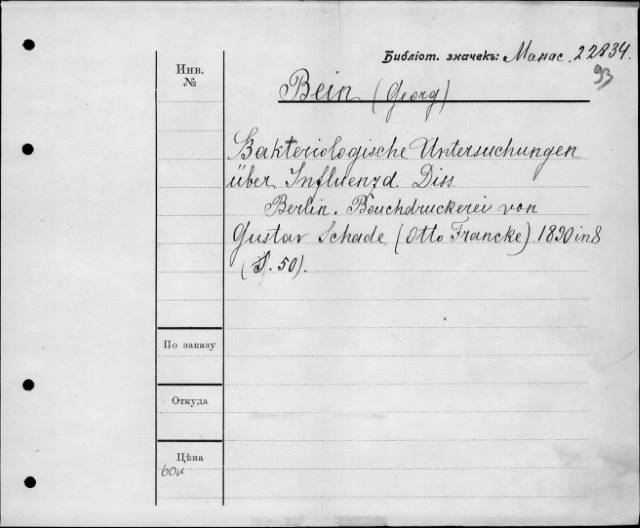 Библіот. значекъ: Манас. 22834.
93
Инв.
№
Bein (Georg)
Bakteriologische Untersuchungen
über Influenza. Diss.
Berlin. Bouchdruckerei von
Gustav Schade (Otto Francke) 1890 in 8
(S. 50).
По заказу
Откуда
Цѣна
60к